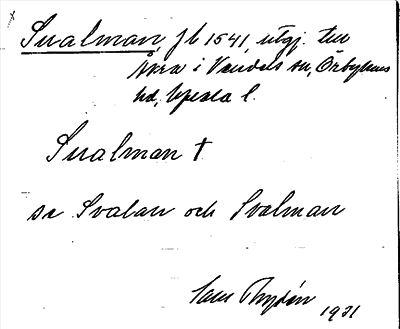 Sualman, jb 1541, utgj. till
Åkra i Vendels sn, Örbyhus
hd, Upsala l.
Sualman †
se Svalan och Svalman
Rydén
1931